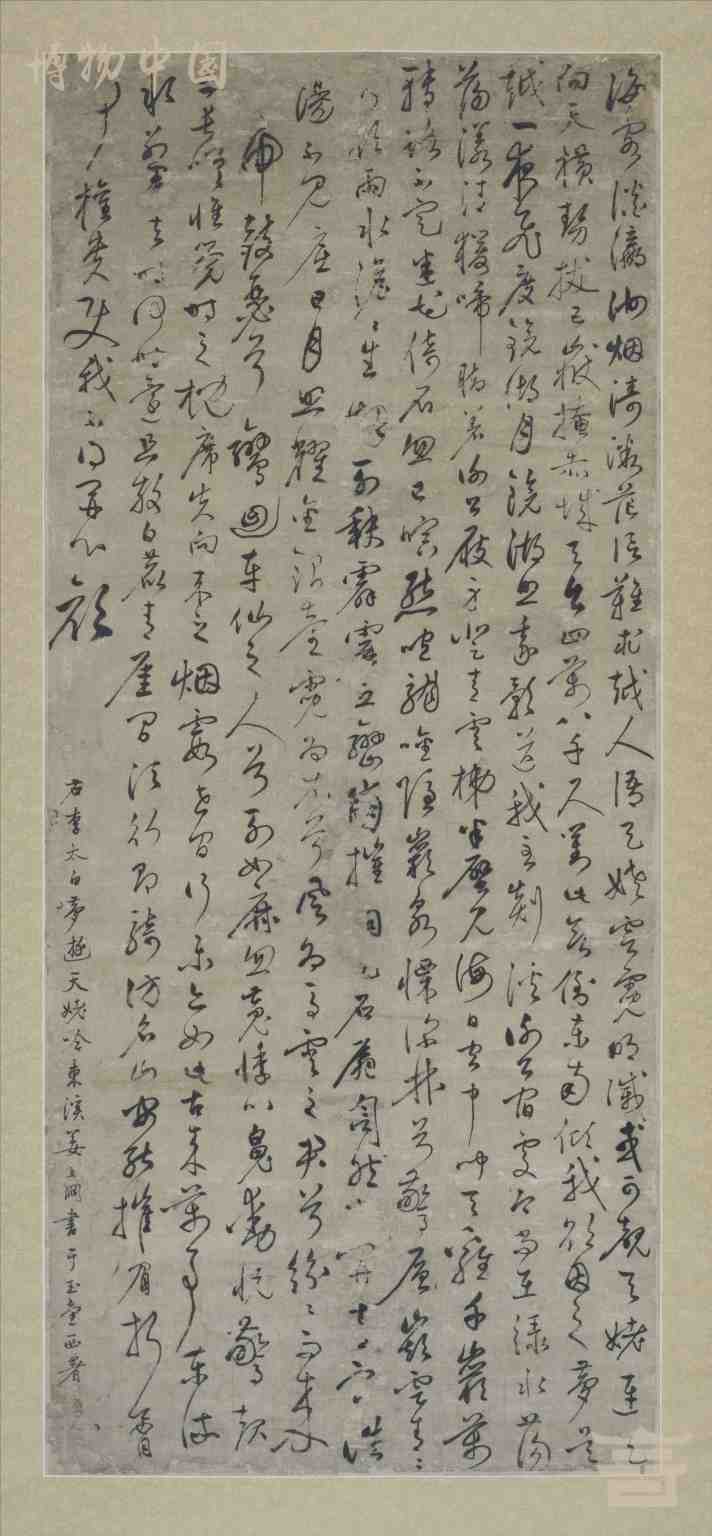 博物中国
海客談瀛洲烟濤微茫信難求越人語天姥雲霓明滅或可覩天姥連天
向天橫勢拔五嶽掩赤城天台四萬八千丈對此欲倒東南傾我欲因之夢吳
越一夜飛度鏡湖月鏡湖照我影送我至剡溪謝公宿處今尚在淥水蕩
蕩漾清猿啼脚著謝公屐身登青雲梯半壁見海日空中聞天雞千巖萬
轉路不定迷花倚石忽已暝熊咆龍吟殷巖泉慄深林兮驚層巔雲青青
兮欲雨水澹澹生烟列缺霹靂丘巒崩摧洞天石扉訇然中開青冥浩
蕩不見底日月照耀金銀臺霓為衣兮風為馬雲之君兮紛紛而來下
虎鼓瑟兮鸞迴車仙之人兮列如麻忽魂悸以魄動怳驚起
而長嗟惟覺時之枕席失向來之烟霞世間行樂亦如此古來萬事東流
水別君去時何時還且放白鹿青崖間須行即騎訪名山安能摧眉折腰
事權貴使我不得開心顏
右李太白夢遊天姥吟東溪姜立綱書于玉堂西署